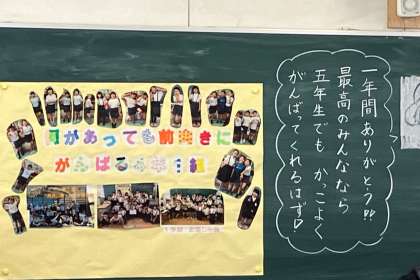 何があっても前向きに
がんばる四年
一年間ありがとう!!
最高のみんななら
五年生でも かっこよく
がんばってくれるはず!